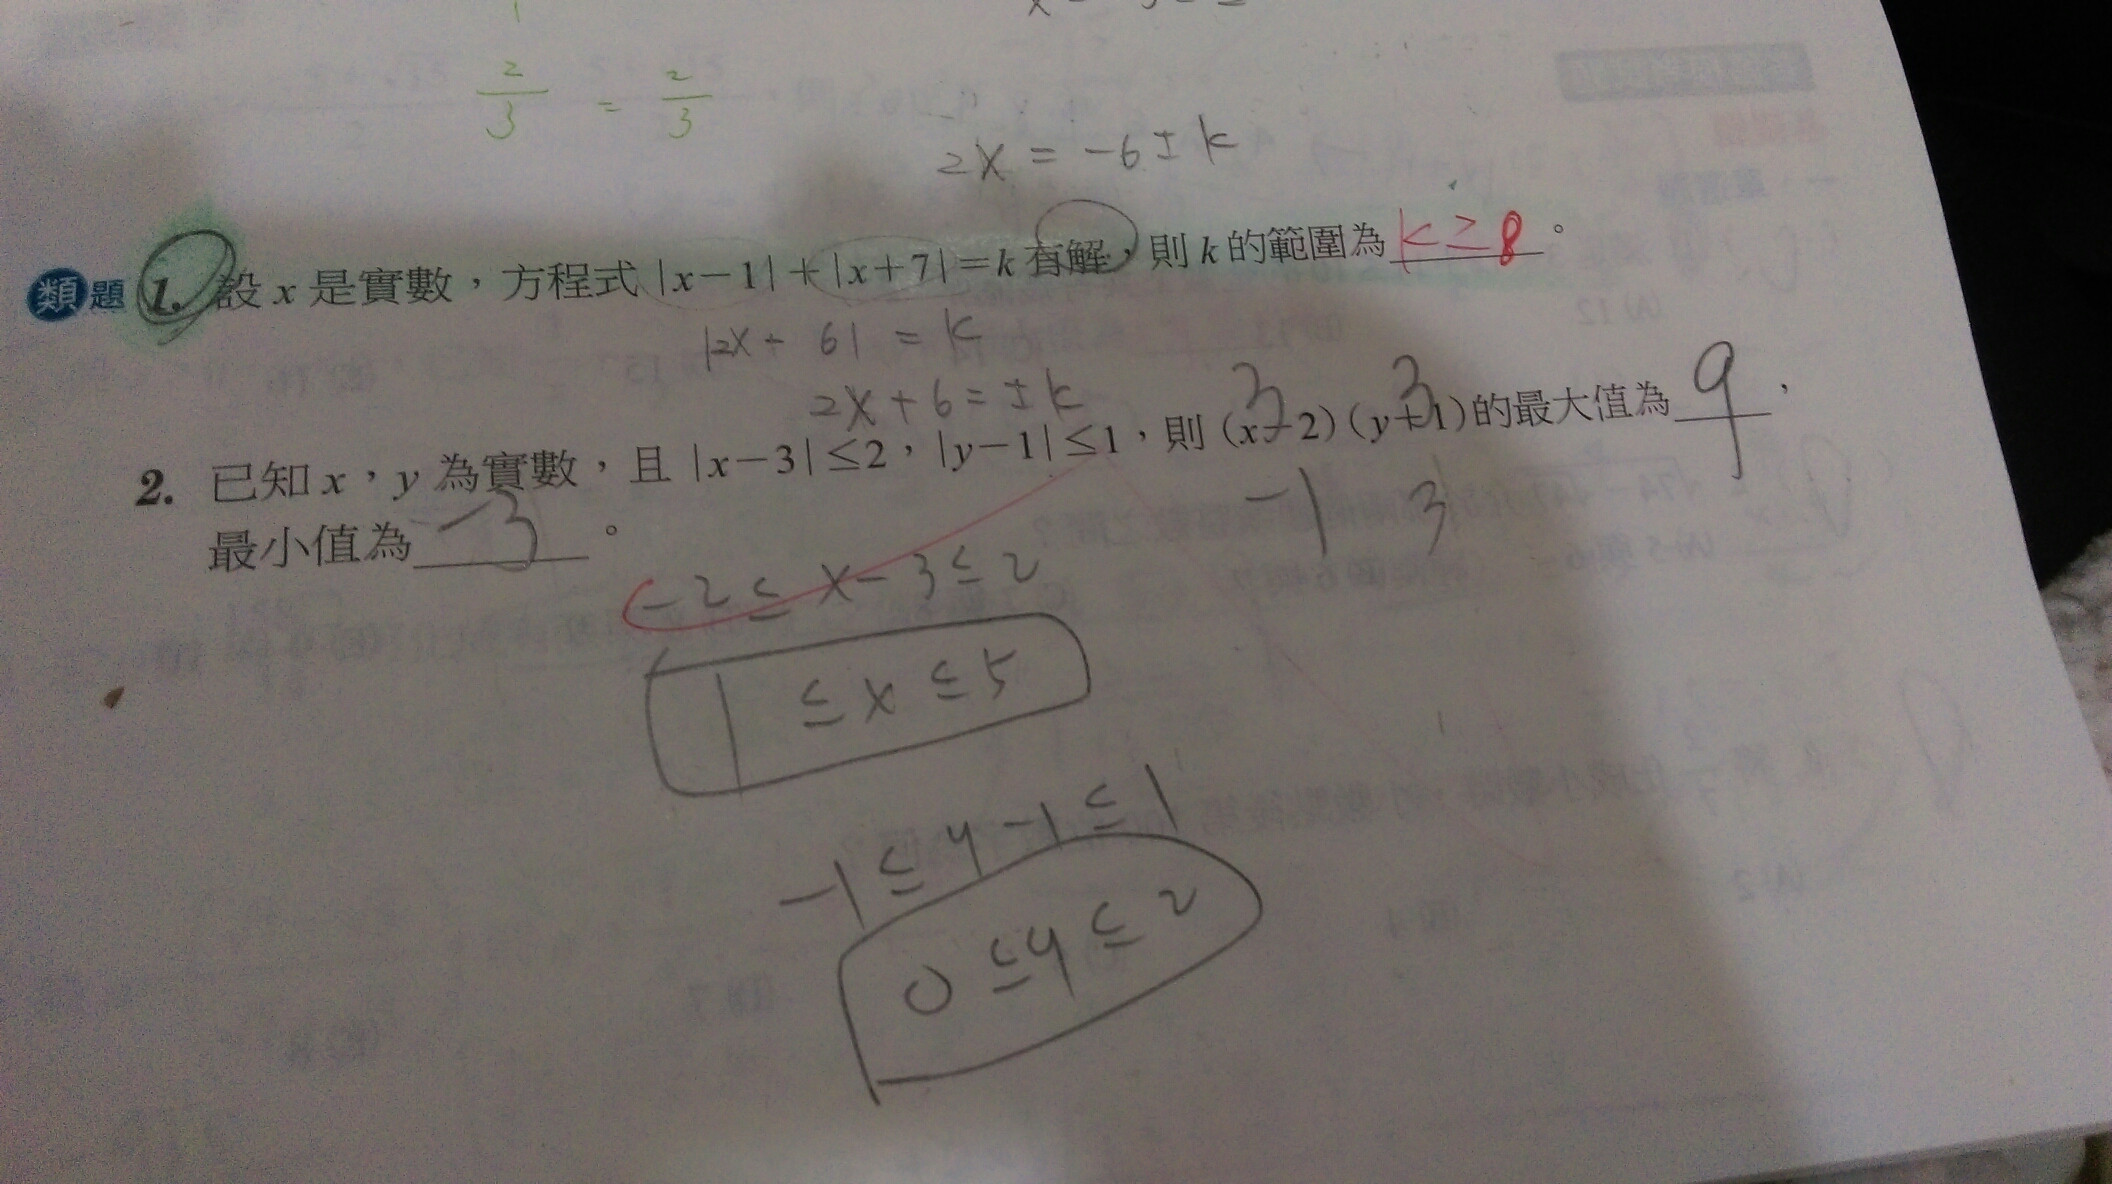 2/3 = 2/3
2x = -6 ± k
類題 1. 設 x 是實數，方程式 |x-1|+|x+7|=k 有解，則 k 的範圍為 k ≥ 8 。
|2x+6| = k
2x+6 = ±k
3 3
2. 已知 x，y 為實數，且 |x-3|≤2，|y-1|≤1，則 (x-2)(y+1) 的最大值為 9 ，
-1 3
最小值為 -3 。
-2 ≤ x-3 ≤ 2
1 ≤ x ≤ 5
-1 ≤ y-1 ≤ 1
0 ≤ y ≤ 2